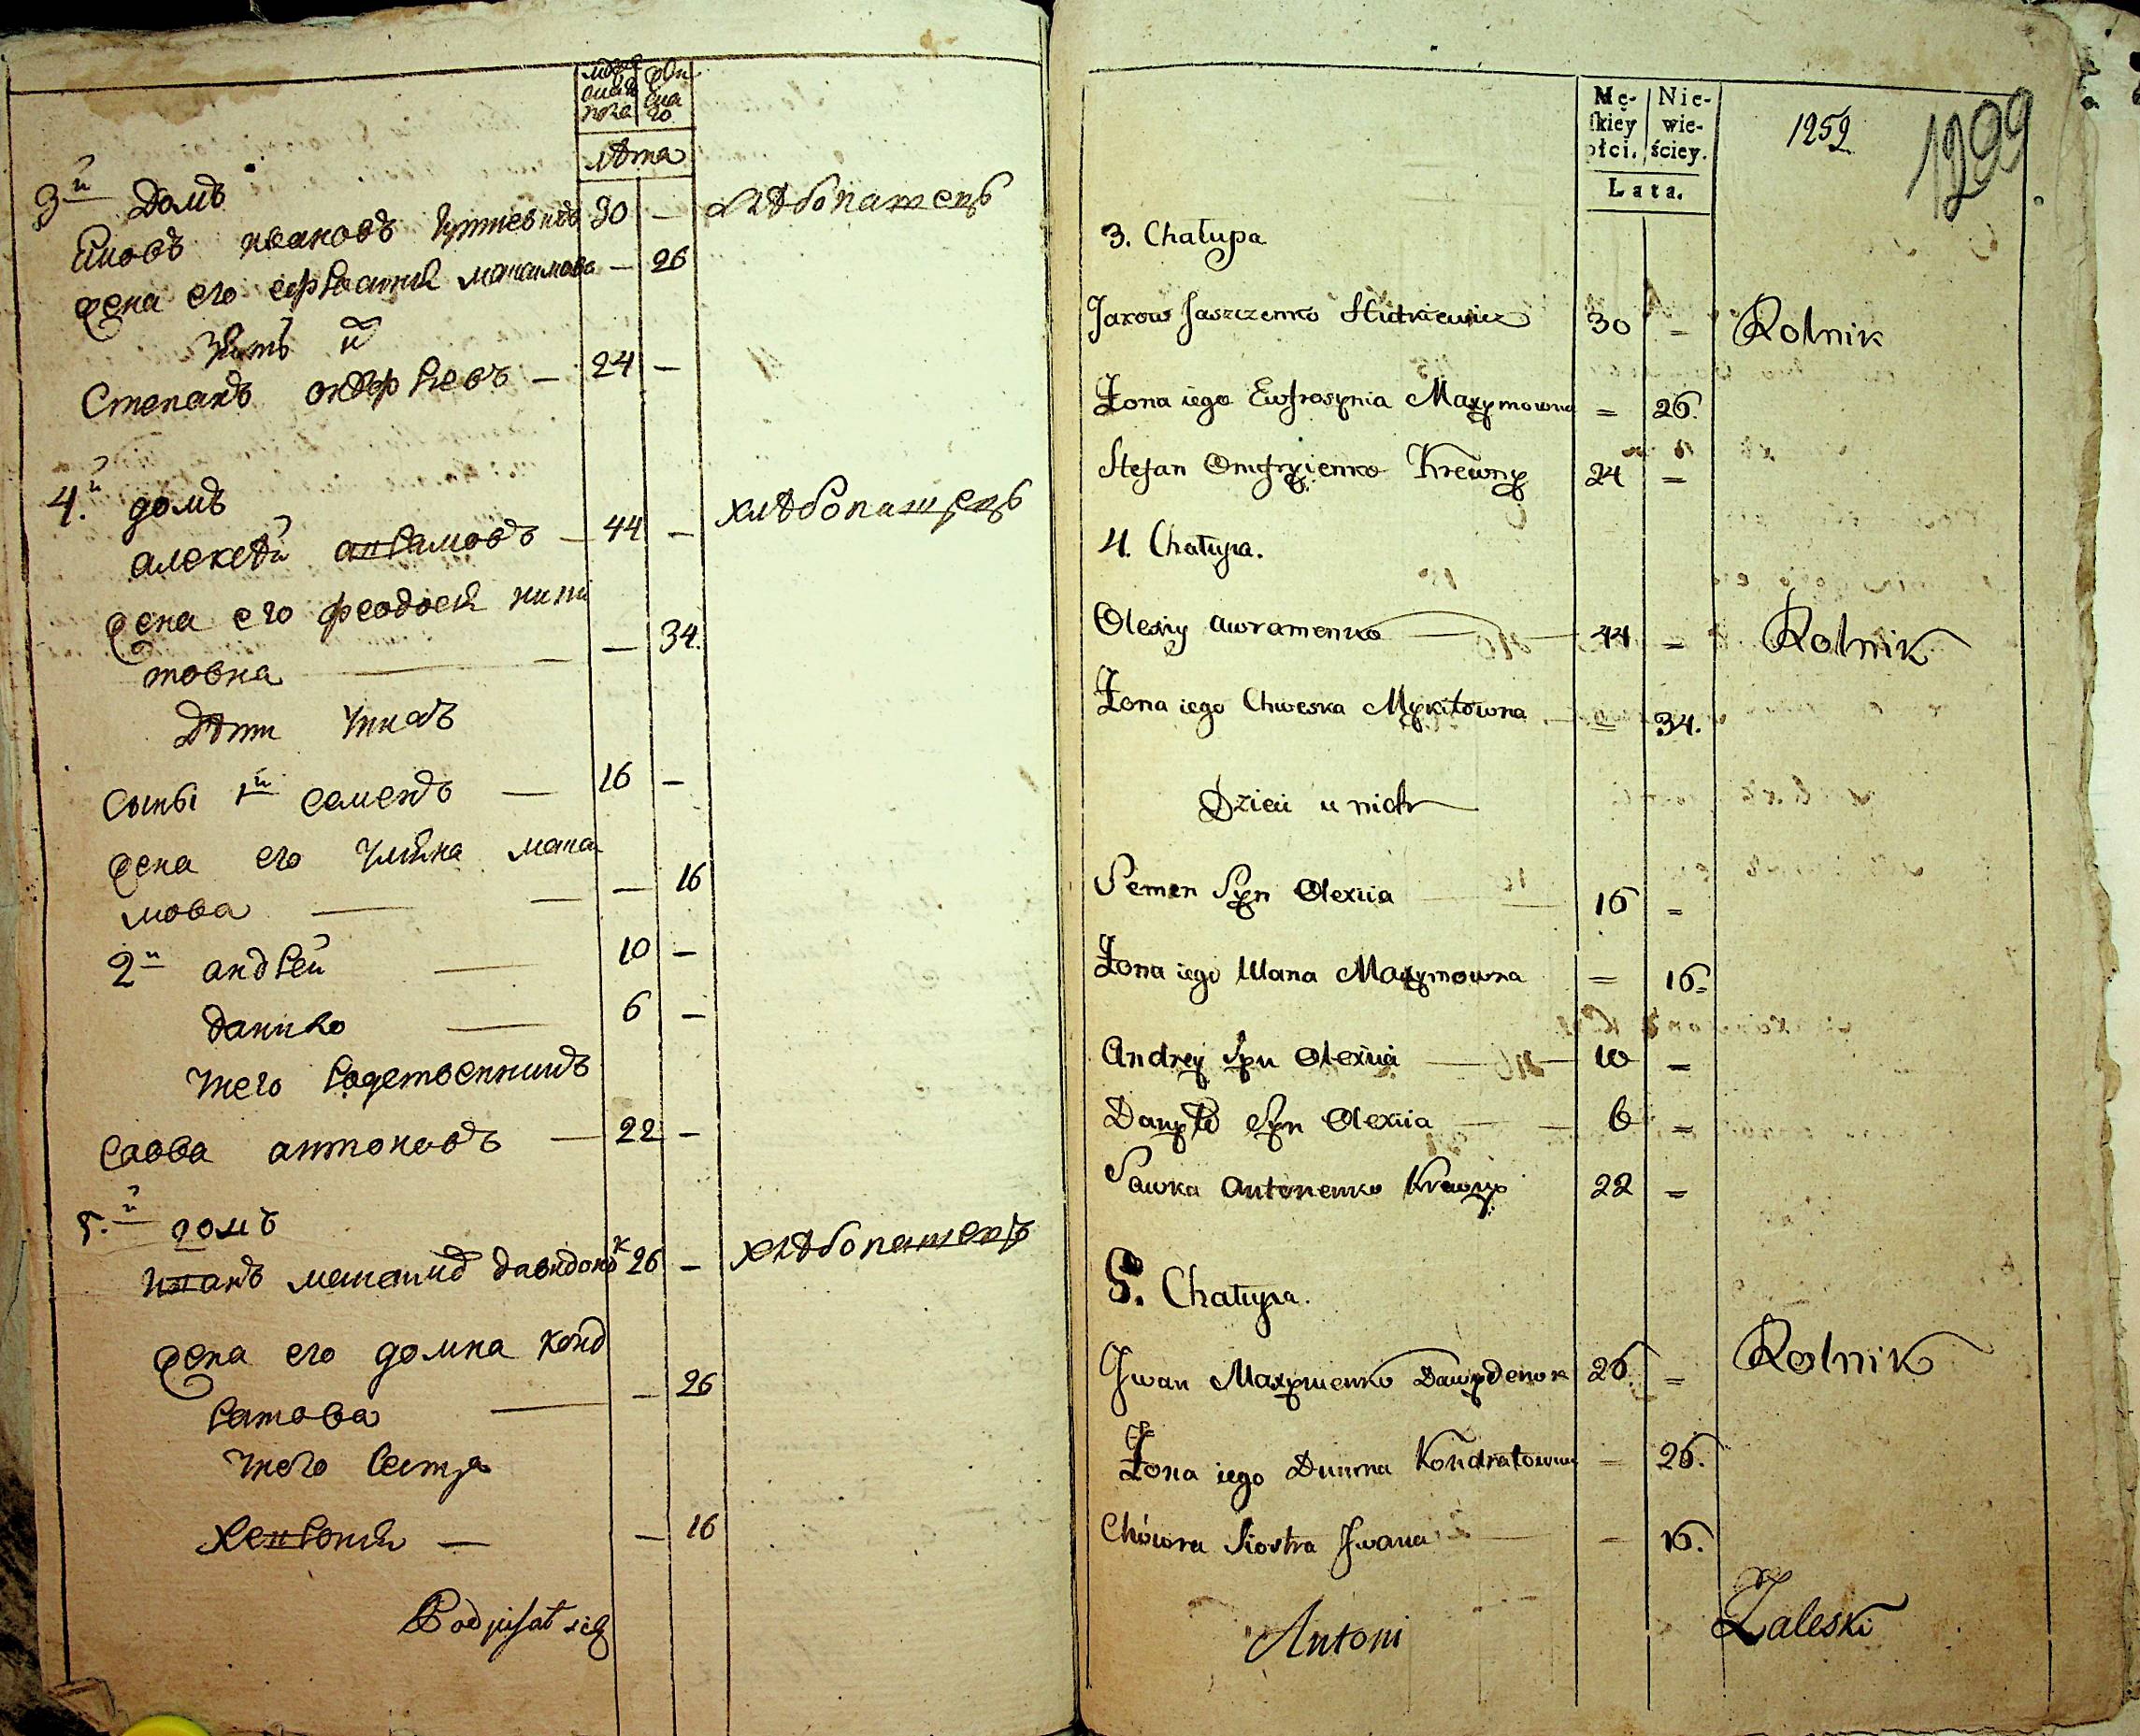 мужеска
лѣта
3й домъ
30 — хлѣбопашецъ
жена его — 26
Степанъ — 24 —
4.й домъ
алексѣй аврамовъ — 44 — хлѣбопашецъ
жена его феодосія ники
товна — 34.
Дѣти у нихъ
сыны 1й семенъ — 16 —
жена его уліяна макси
мова — 16
2й андрей — 10 —
данило — 6 —
у него родственникъ
савва антоновъ — 22 —
5.й домъ
иванъ максимовъ давидонок 26 — хлѣбопашецъ
жена его домна конд
ратова — 26
у него сестра
— 16
Podpisał się
Mę-
skiey
płci.
Nie-
wie-
ściey.
Lata.
1252
1299
3. Chałupa
Jakow Jaszczenko 30 = Rolnik
Żona iego Ewfrosynia Maxymowna = 26.
Stefan Omfryienko Krewny 24 =
4. Chałupa.
Olexiy Awramenko 44 = Rolnik
Żona iego Chweska Mykitowna = 34.
Dzieci u nich
Semen Syn Olexiia 16 =
Żona iego Ulana Maxymowna = 16=
Andrey Syn Olexiia 10 =
Danyło Syn Olexiia 6 =
Sawka Antonenko Krewny 22 =
5. Chałupa.
Jwan Maxymenko Dawydenok 26. = Rolnik
Żona iego Dumna Kondratowna = 26.
Chówra Siostra Jwana = 16.
Antoni Zaleski